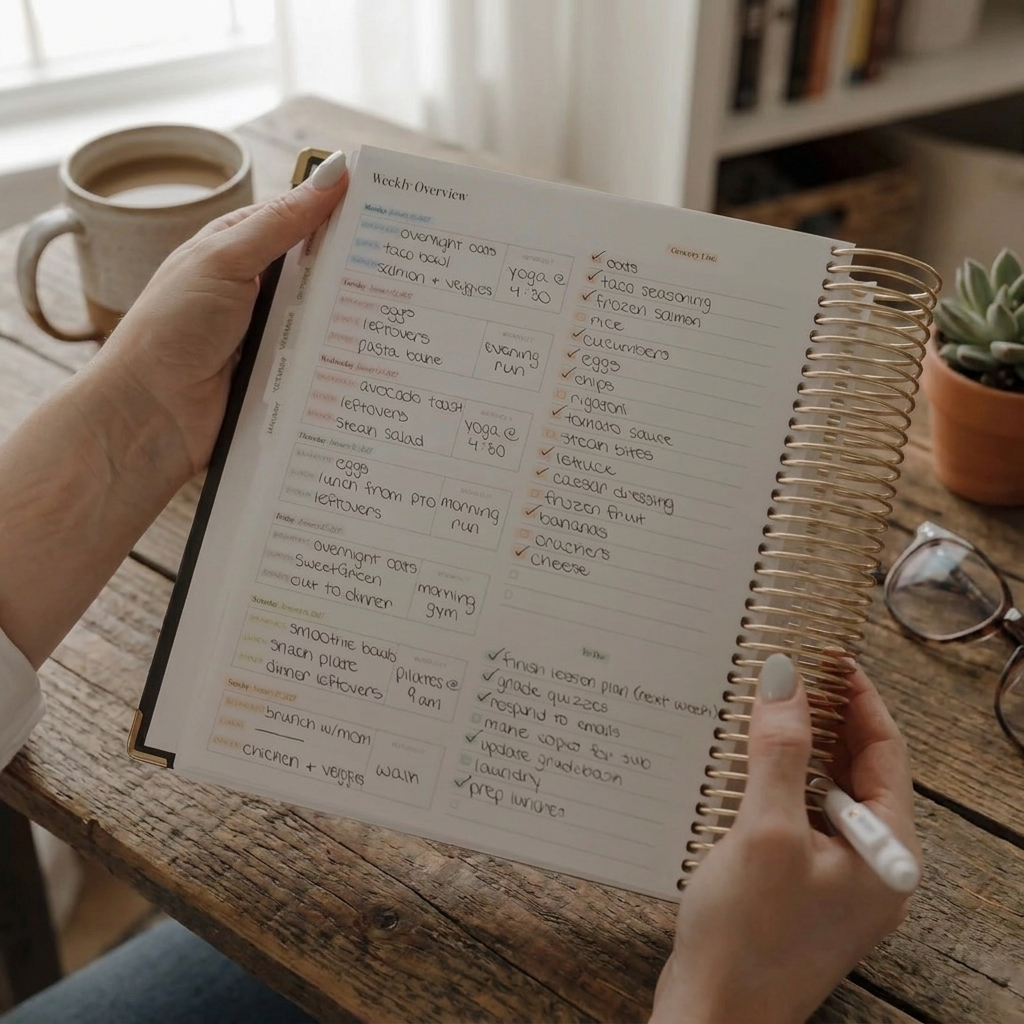 Weekly Overview
Monday
overnight oats
taco bowl
salmon + veggies
yoga @
4:30
Tuesday
eggs
leftovers
pasta bake
evening
run
Wednesday
avocado toast
leftovers
steak salad
yoga @
4:30
Thursday
eggs
lunch from PTO
leftovers
morning
run
Friday
overnight oats
SweetGreen
out to dinner
morning
gym
Saturday
smoothie bowls
snack plate
dinner leftovers
pilates @
9am
Sunday
brunch w/mom
chicken + veggies
walk
Grocery List
oats
taco seasoning
frozen salmon
rice
cucumbers
eggs
chips
rigatoni
tomato sauce
steak bites
lettuce
caesar dressing
frozen fruit
bananas
crackers
cheese
To Do
finish lesson plan (next week)
grade quizzes
respond to emails
make copies for sub
update gradebook
laundry
prep lunches